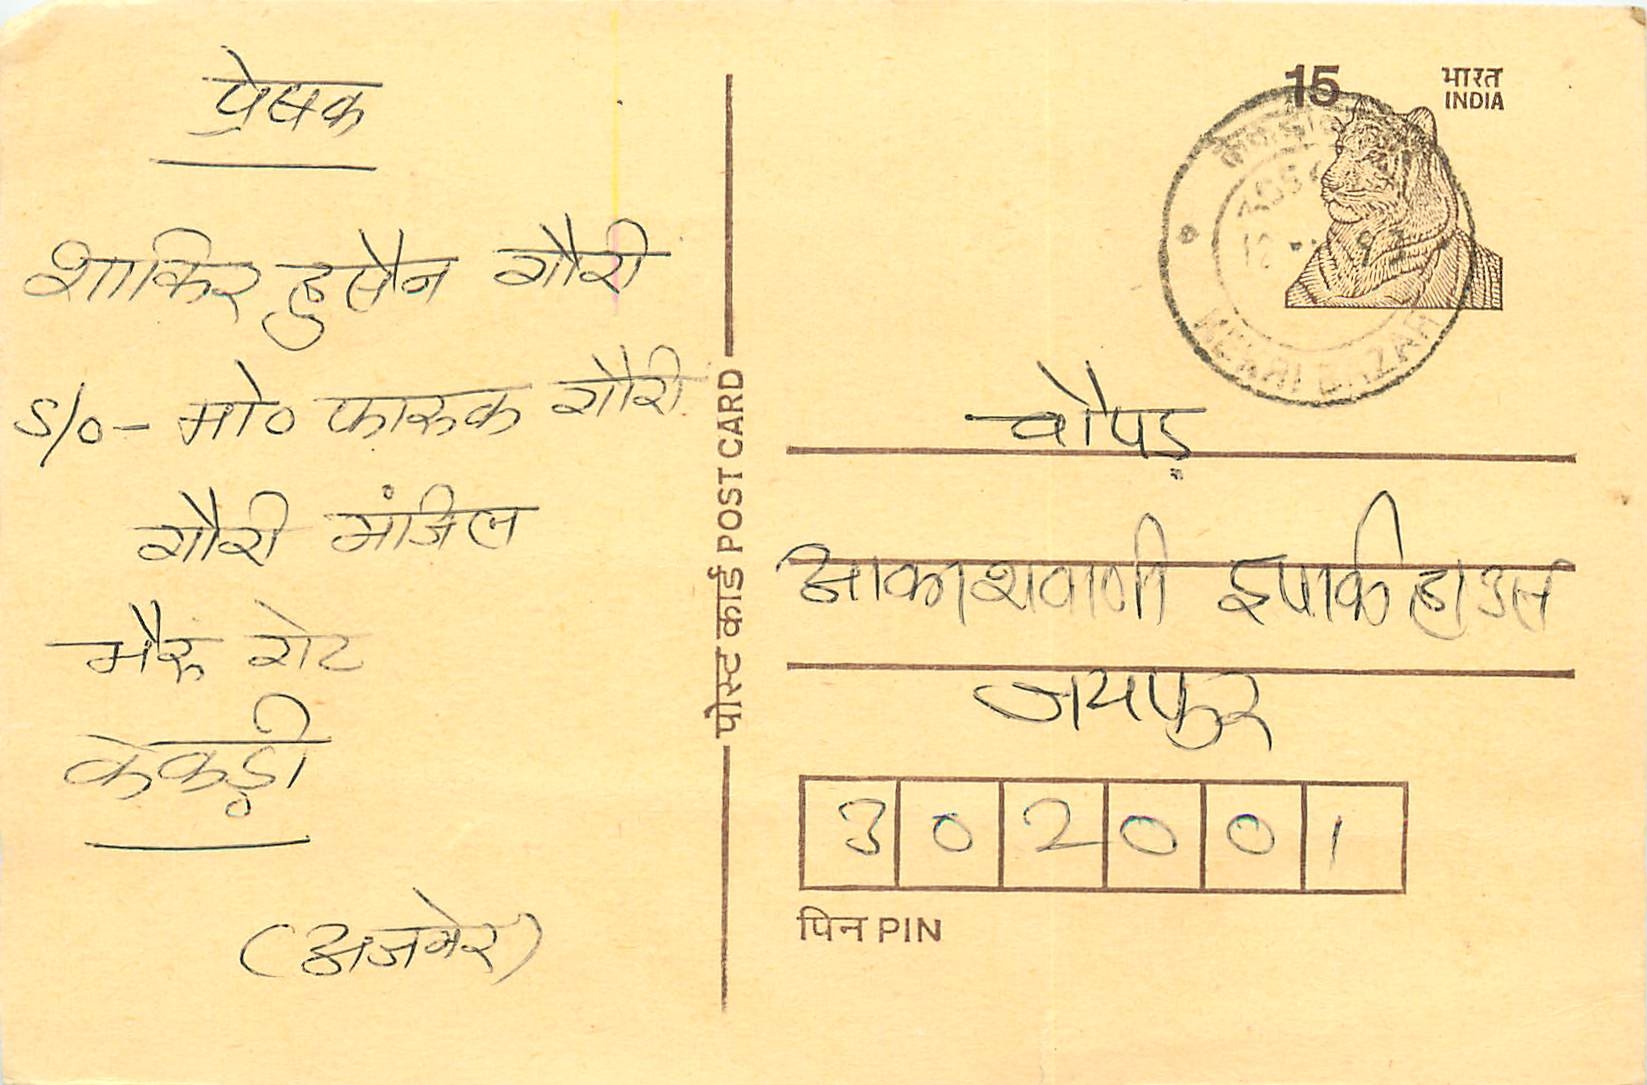 प्रेषक
शाकिर हुसैन गौरी
S/o- मो० फारूक गौरी
गौरी मंजिल
भैरू गेट
केकड़ी
(अजमेर)
पोस्ट कार्ड POST CARD
15
भारत
INDIA
12
KEKRI BAZAR
चौपड़
आकाशवाणी इपार्क हाउस
जयपुर
302001
पिन PIN